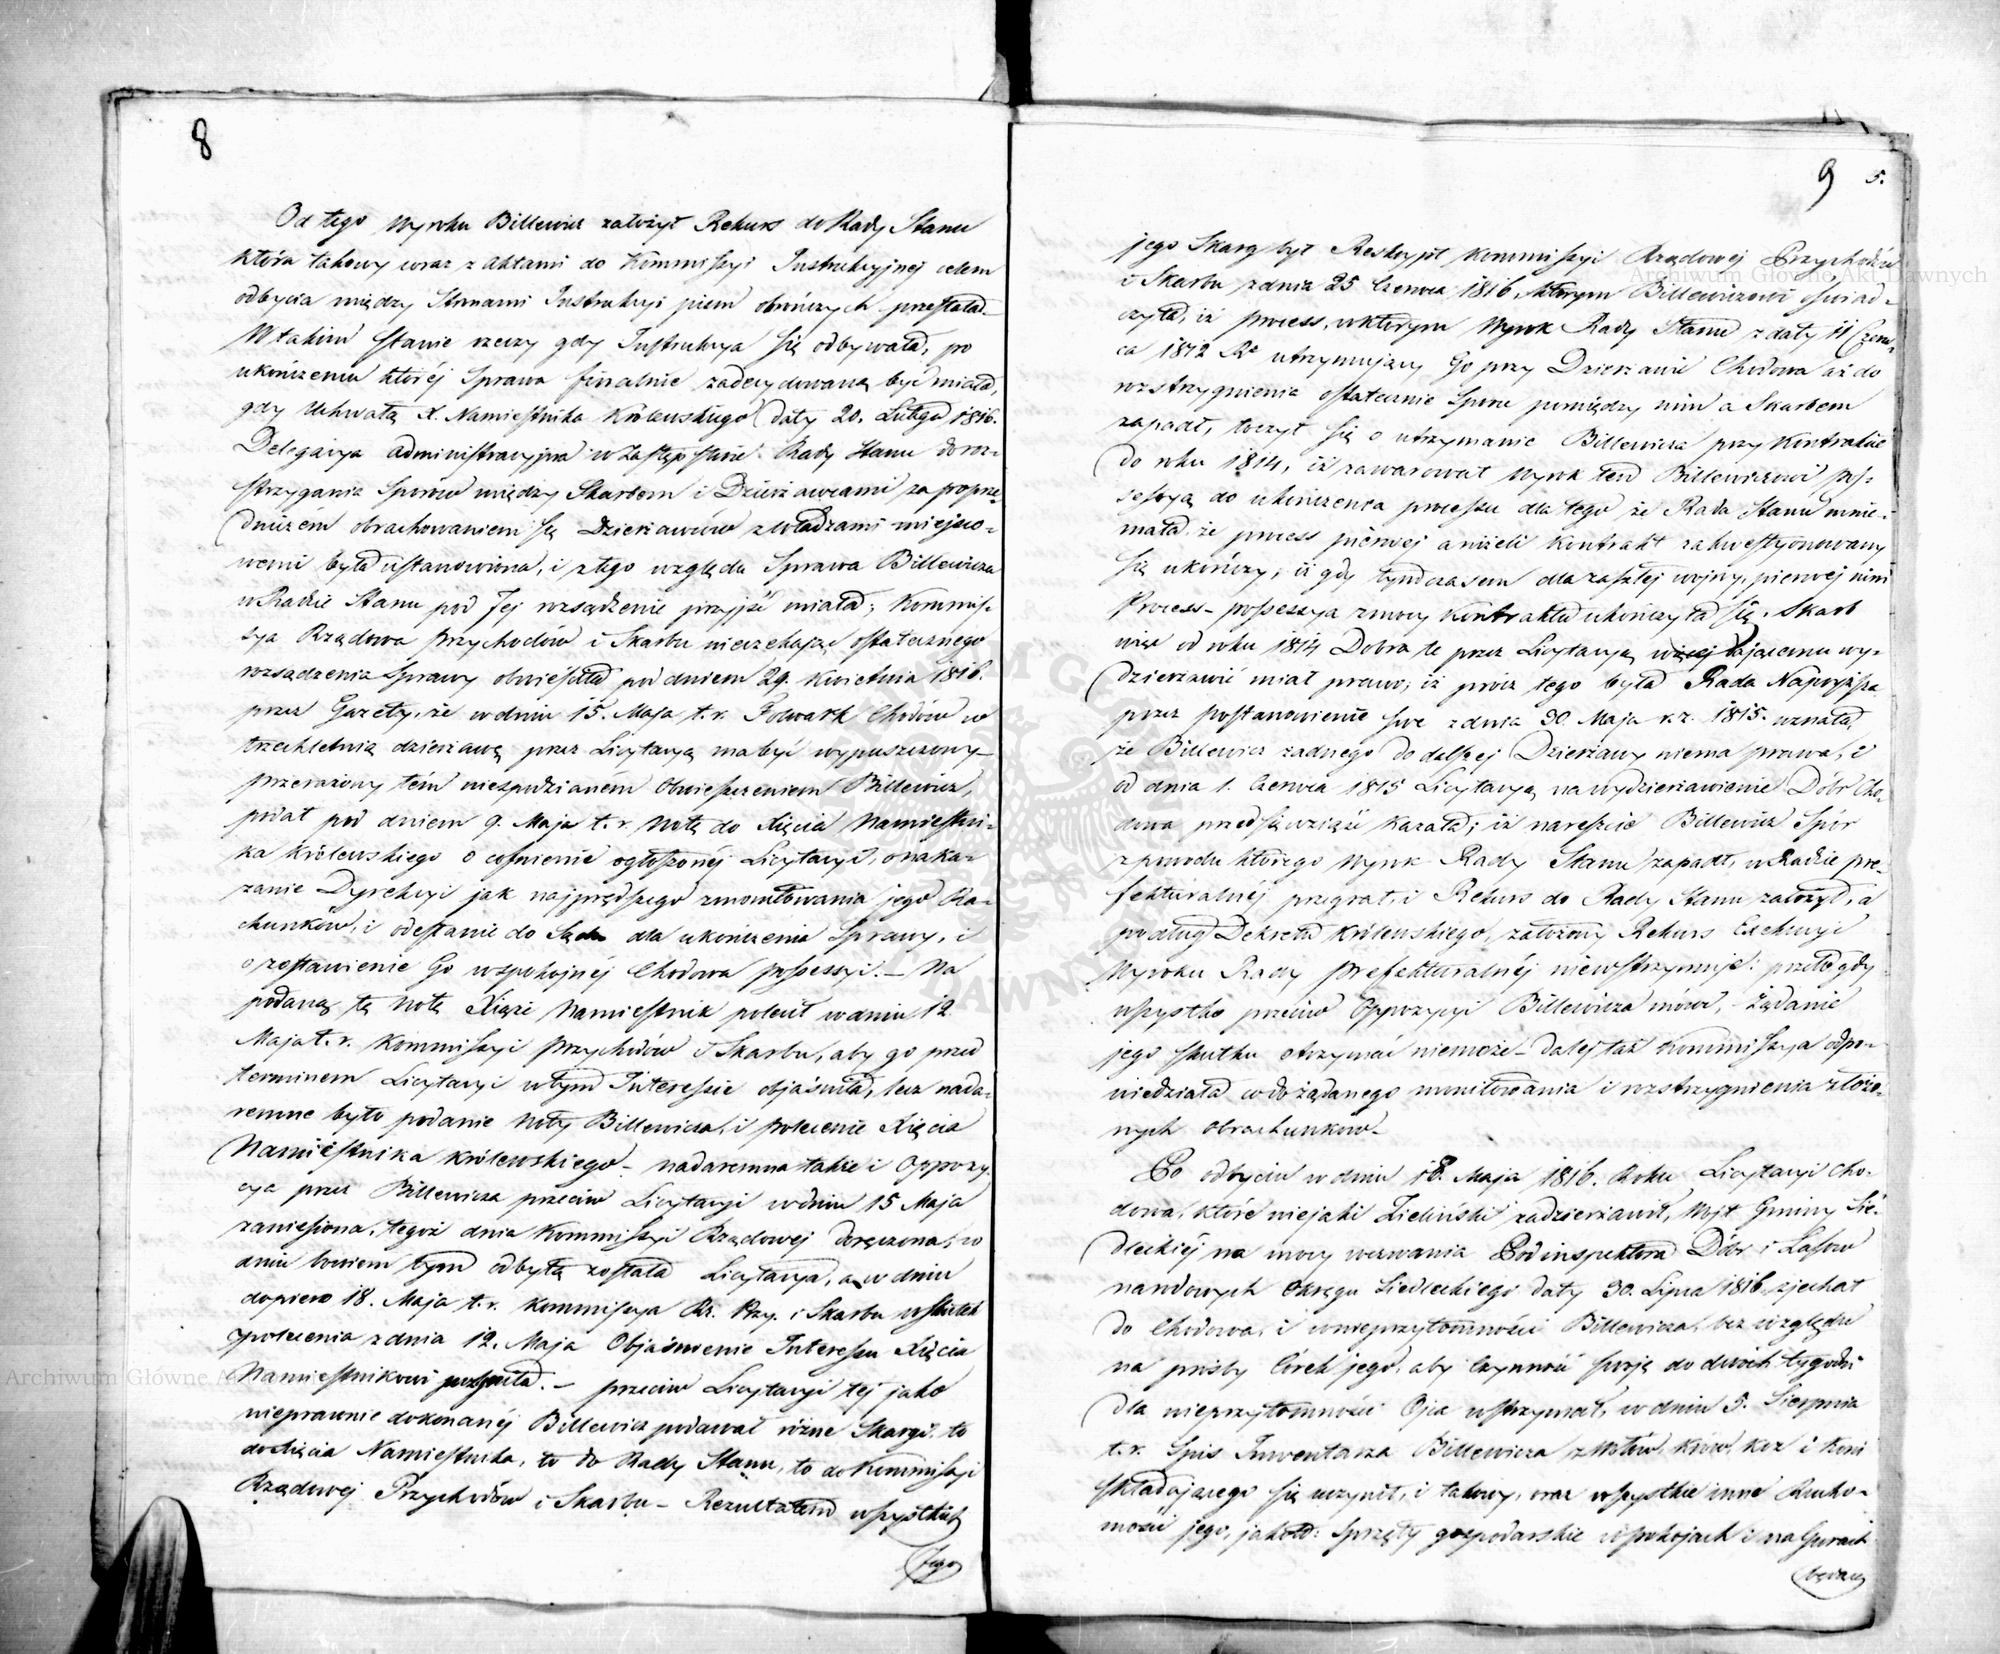 8
Od tego Wyroku Billewicz założył Rekurs do Rady Stanu
która takowy wraz z Aktami do Kommissyi Instrukcyjnej celem
odbycia między Stronami Instrukcyi pism obrończych przesłała.
W takim stanie rzeczy gdy Instrukcya się odbywała, po
ukończeniu której Sprawa finalnie zadecydowaną być miała,
gdy Uchwałą X. Namiestnika Królewskiego daty 20. Lutego 1816.
Delegacya administracyjna w zastępstwie Rady Stanu do roz-
strzygania Sporów między Skarbem i Dzierżawcami za poprze-
dniczém obrachowaniem się Dzierżawców z władzami miejsco-
wemi była ustanowiona, i z tego względu Sprawa Billewicza
w Radzie Stanu pod Jej rozsądzenie przyjść miała; Kommis-
sya Rządowa Przychodów i Skarbu nieczekając ostatecznego
rozsądzenia Sprawy obwieściła pod dniem 29. Kwietnia 1816.
przez Gazety, że w dniu 15. Maja t. r. Folwark Chodów w
trzechletnią dzierżawę przez Licytacyą ma być wypuszczony
Przerażony tém niespodzianém Obwieszczeniem Billewicz,
podał pod dniem 9. Maja t. r. Notę do Xięcia Namiestni-
ka Królewskiego o cofnienie ogłoszonéj Licytacyi, o naka-
zanie Dyrekcyi jak najprędszego zmonitowania jego Ra-
chunków, i odesłanie do Sądu dla ukończenia Sprawy, i
o zostawienie Go w spokojnéj Chodowa possessyi. — Na
podaną tę Notę Xiąże Namiestnik polecił w dniu 12
Maja t. r. Kommissyi Przychodów i Skarbu, aby go przed
terminem Licytacyi w tym Interessie objaśniła, lecz nada-
remne było podanie Noty Billewicza, i polecenie Xięcia
Namiestnika Królewskiego — nadaremna także i Oppozy-
cya przez Billewicza przeciw Licytacyi w dniu 15 Maja
zaniesiona, tegoż dnia Kommissyi Rządowej doręczona, w
dniu bowiem tym odbytą została Licytacya, a w dniu
dopiero 18. Maja t. r. Kommissya Rz. Przy. i Skarbu w skutek
polecenia z dnia 12. Maja Objaśnienie Interessu Xięcia
Namiestnikowi przesłała. — przeciw Licytacyi tej jako
nieprawnie dokonanéj Billewicz podawał różne Skargi to
do Xięcia Namiestnika, to do Rady Stanu, to do Kommissyi
Rządowej Przychodów i Skarbu — Rezultatem wszystkich
Jego
9 5.
jego Skarg był Reskrypt Kommissyi Rządowej Przychodów
i Skarbu z dnia 25 Czerwca 1816, którym Billewiczowi oświad-
czyła, iż process, w którym Wyrok Rady Stanu z daty 11 Czerw-
ca 1812 Rº utrzymujący Go przy Dzierżawie Chodowa aż do
rozstrzygnienia ostatecznie Sporu pomiędzy nim a Skarbem
zapadł, toczył się o utrzymanie Billewicza przy Kontrakcie
do roku 1814, iż zawarował Wyrok ten Billewiczowi pos-
sessyą do ukończenia processu dla tego że Rada Stanu mnie-
mała że process pierwej aniżeli Kontrakt zakwestyonowany
się ukończy, iż gdy tymczasem dla zaszłej wojny, pierwej nim
Process — possessya z mocy Kontraktu ukończyła się. Skarb
więc od roku 1814 Dobra te przez Licytacyą więcej dającemu wy-
dzierżawić miał prawo; iż prócz tego była Rada Najwyższa
przez postanowienie swe z dnia 30. Maja r. z. 1815. uznała,
że Billewicz żadnego do dalszej Dzierżawy niema prawa, i
od dnia 1. Czerwca 1815 Licytacyą na wydzierżawienie Dóbr Cho-
dowa przedsięwziąść kazała; iż nareszcie Billewicz Spór
z powodu którego Wyrok Rady Stanu zapadł, w Radzie pre-
fekturalnéj przegrał, i Rekurs do Rady Stanu założył, a
podług Dekretu Królewskiego, założony Rekurs Exekucyi
Wyroku Rady Prefekturalnéj niewstrzymuje: przeto gdy
wszystko przeciw Oppozycyi Billewicza mówi, — żądanie
jego skutku otrzymać niemoże — Dalej taż Kommissya odpo-
wiedziała co do żądanego monitowania i rozstrzygnienia złożo-
nych obrachunków —
Po odbyciu w dniu 18. Maja 1816. Roku Licytacyi Cho-
dowa, które niejaki Zieliński zadzierżawił, Wójt Gminy Sie-
dleckiéj na mocy wezwania Podinspektora Dóbr i Lasów
narodowych Okręgu Siedleckiego daty 30. Lipca 1816. zjechał
do Chodowa, i w nieprzytomności Billewicza, bez względu
na prośby Córek jego, aby Czynność swoją do dwóch tygodni
dla nieprzytomności Ojca wstrzymał, w dniu 5. Sierpnia
t. r. Spis Inwentarza Billewicza z Wołów, Krów, Kóz i Koni
składającego się uczynił, i takowy, oraz wszystkie inne Rucho-
mości jego, jakoto: Sprzęty gospodarskie w pokojach i na Górach
będące